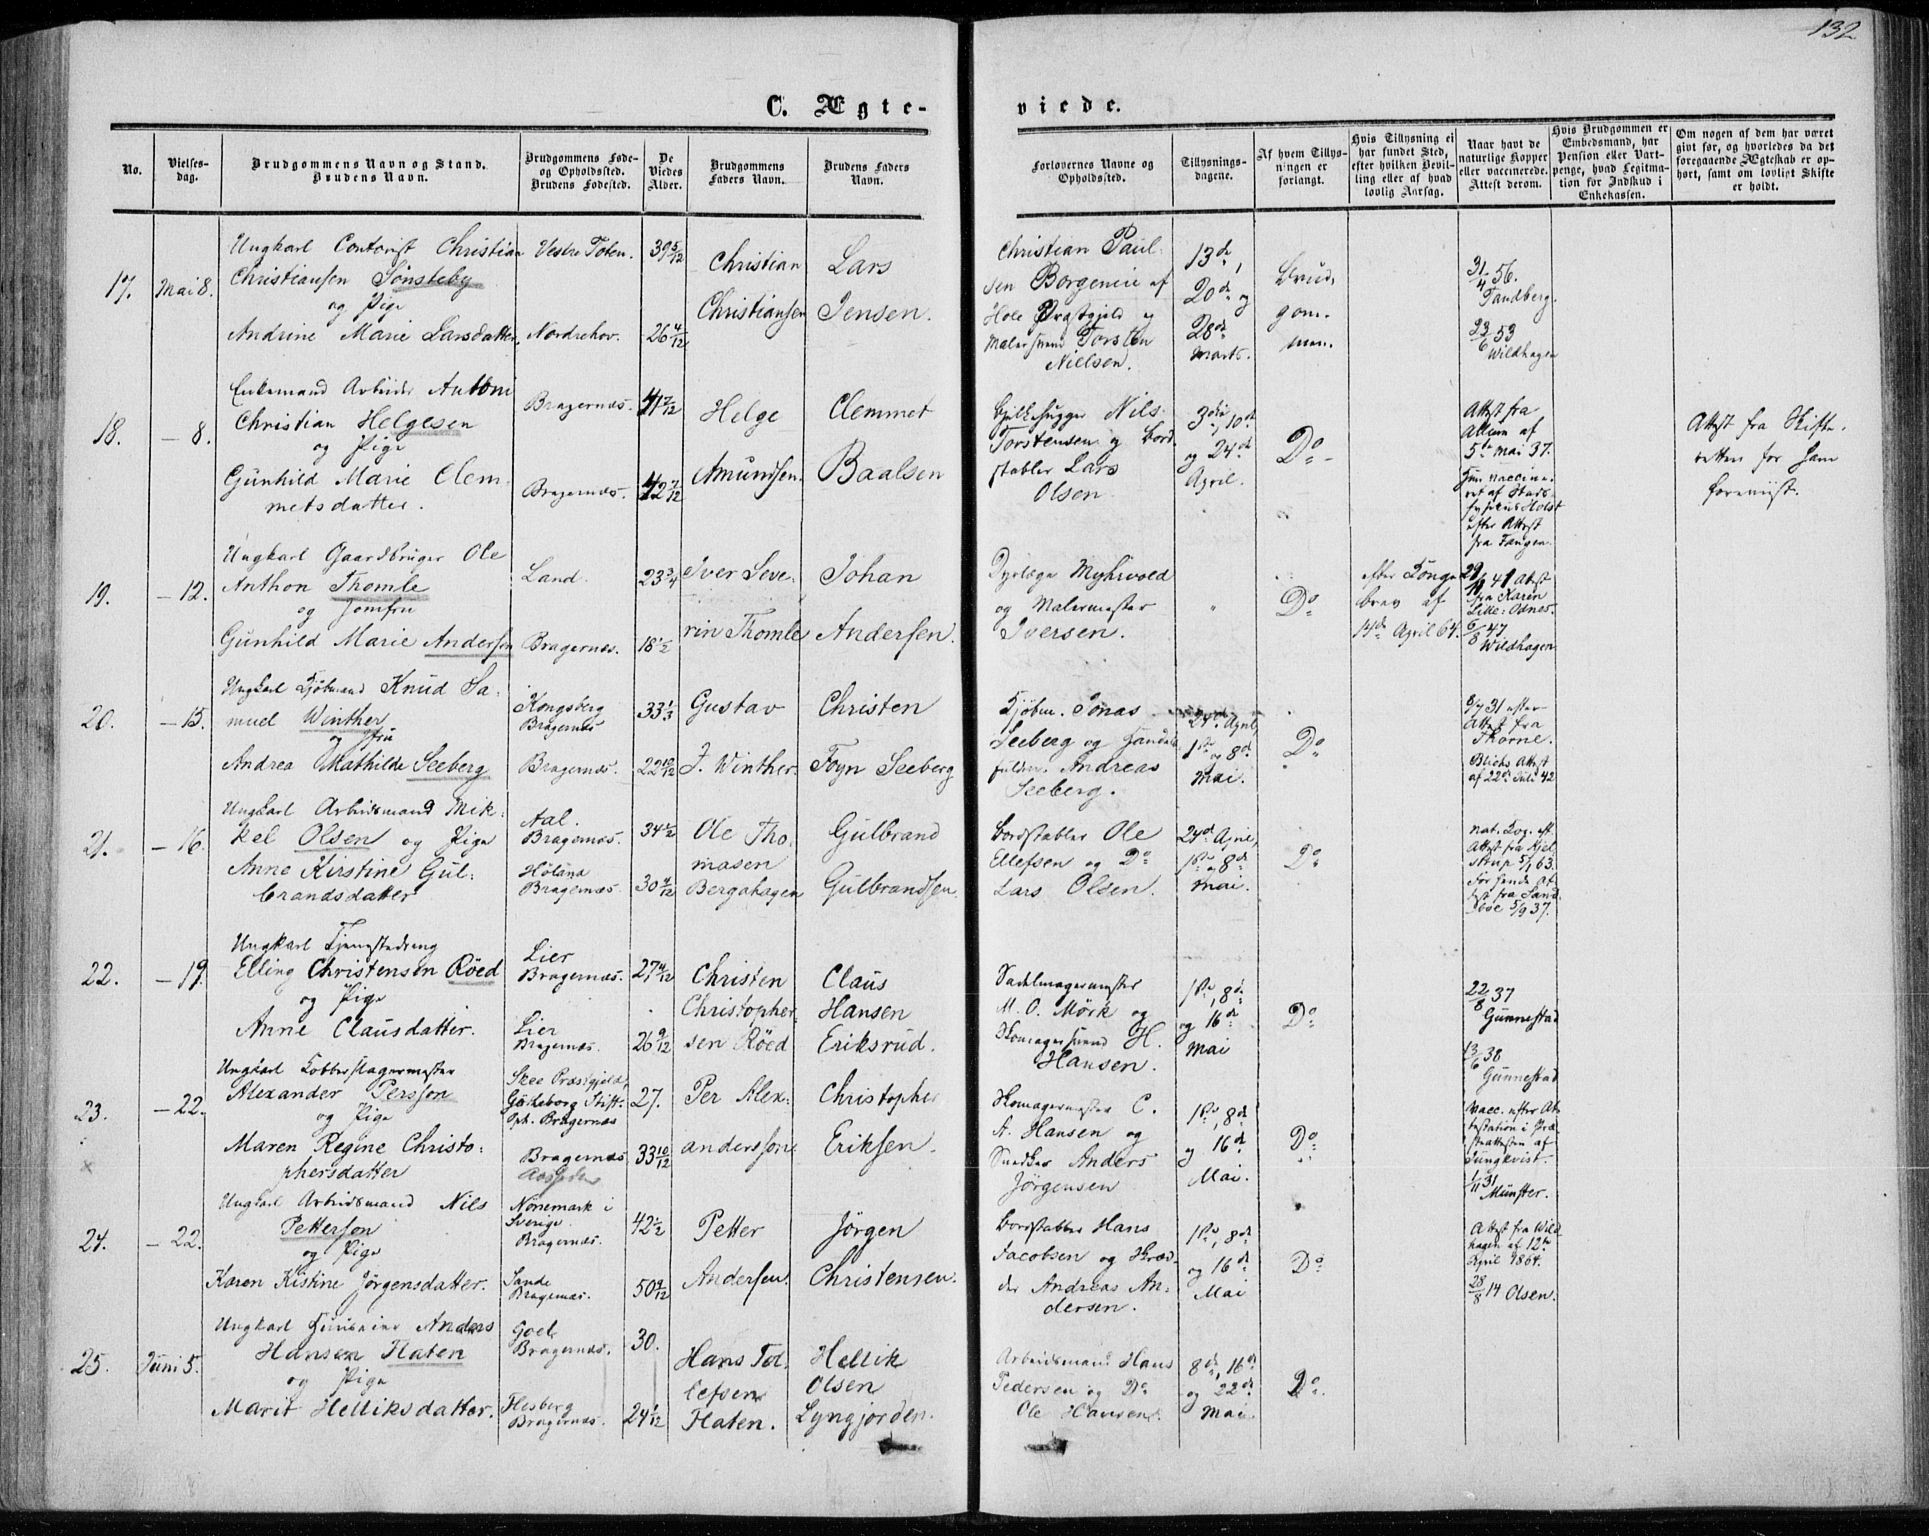 132
C. Ægte-
viede.
No.
Vielses-
dag.
Brudgommens Navn og Stand.
Brudens Navn.
Brudgommens Føde-
og Opholdssted.
Brudens Fødested.
De
Viedes
Alder.
Brudgommens
Faders Navn.
Brudens Faders
Navn.
Forlovernes Navne og
Opholdssted.
Tillysnings-
dagene.
Af hvem Tillys-
ningen er
forlangt.
Hvis Tillysning ei
har fundet Sted,
efter hvilken Bevil-
ling eller af hvad
lovlig Aarsag.
Naar havt de
naturlige Kopper
eller vaccinerede.
Attest derom.
Hvis Brudgommen er
Embedsmand, har
Pension eller Vart-
penge, hvad Legitima-
tion for Indskud i
Enkekassen.
Om nogen af dem har været
givt før, og hvorledes da det
foregaaende Ægteskab er op-
hørt, samt om lovligt Skifte
er holdt.
17. Mai 8.
Ungkarl Contorist Christian
Christiansen Sønsteby
og Pige
Andrine Marie Larsdatter.
Vestre Toten.
Nordrehov.
39 5/12
26 4/12
Christian
Christiansen
Lars
Jensen.
Christian Paul
sen Borgenvie af
Hole Præstgjeld og
Malersvend Torsten
Nielsen.
13de,
20de og
28de
Marts.
Brud,
gom.
men.
31/4 56.
Tandberg.
23/6 53
Wildhagen
18. – 8.
Enkemand Arbeider Anthon
Christian Helgesen
og Pige
Gunhild Marie Clem-
metsdatter.
Bragernæs.
Bragernæs.
41 7/12
42 7/12
Helge
Amundsen.
Clemmet
Baalsen
Nils
Torstensen og Bord-
stabler Lars
Olsen
3die, 10de
og 24de
April.
Do
Attest fra
af
5te Mai 37.
Hun vaccine-
ret af Stads-
Holst
efter Attest
fra Tangen.
Attest fra Skifte-
retten for ham
forevist.
19. – 12.
Ungkarl Gaardbruger Ole
Anthon Thomle
og Jomfru
Gunhild Marie Andersen
Land.
Bragernæs.
23 3/4
18 1/2
Iver Seve-
rin Thomle
Johan
Andersen.
Dyrlæge Myhrvold
og Malermester
Iversen.
"
Do
efter Konge-
brev af
14de April 64.
41 Attest
fra Karen
Litle: Odnes.
6/8 47
Wildhagen
20. – 15.
Ungkarl Kjøbmand Knud Sa-
muel Winther
og Jfru
Andrea Mathilde Seeberg
Kongsberg
Bragernæs
Bragernæs.
33 1/3
22 10/12
Gustav
J. Winther.
Christen
Fogn Seeberg
Kjøbm. Jonas
Seeberg og Handels
fuldm. Andreas
Seeberg.
24de April,
1ste og 8de
Mai.
Do
8/7 31 efter
Attest fra
Thorne.
Blichs Attest
af 22de Juli 42
21. – 16.
Ungkarl Arbeidsmand Mik-
kel Olsen og Pige
Anne Kirstine Gul-
brandsdatter
Aal.
Bragernæs.
Høland
Bragernæs.
34 1/2
30 4/12
Ole Tho-
masen
Bergahagen
Gulbrand
Gulbrandsen.
Bordstabler Ole
Ellefsen og Do
Lars Olsen.
24de April,
1ste og 8de
Mai.
Do
nat. Kop. eft.
Attest fra Kjel
strup 5/1 63.
For hende At-
test fra Sand
boe 5/9 37.
22. – 19.
Ungkarl Tjenestedreng
Elling Christensen Røed
og Pige
Anne Clausdatter.
Lier
Bragernæs.
Lier
Bragernæs.
27 4/12
26 9/12
Christen
Christopher-
sen Røed
Claus
Hansen
Eriksrud.
Sadelmagermester
M. O. Mørk og
Skomagersvend H.
Hansen.
1ste, 8de
og 16de
Mai
Do
22/8 37
Gunnestad
13/6 38
Gunnestad
23. – 22.
Ungkarl Kobberslagermester
Alexander Persson
og Pige
Maren Regine Christo-
phersdatter
Skee Præstgjeld,
Gøteborg Stift.
Oph. Bragernæs
Bragernæs
27.
33 10/12
Per Alex-
andersson.
Christopher
Eriksen.
Skomagermester C.
A. Hansen og
Snedker Anders
Jørgensen
1ste, 8de
og 16de
Mai.
Do
Vacc. efter At-
testation i Præ-
steattesten af
Ljungkvist.
1/11 31
Münster.
24. – 22.
Ungkarl Arbeidsmand Nils
Petterson
og Pige
Karen Kistine Jörgensdatter.
Nønemark i
Sverige.
Bragernæs.
Sande
Bragernæs.
42 1/2
50 9/12
Petter
Andersen.
Jørgen
Christensen.
Bordstabler Hans
Jacobsen og Skræd-
der Andreas An-
dersen.
1ste, 8de
og 16de
Mai
Do
Attest fra Wild
hagen af 12te
April 1864.
28/8 14 Olsen.
25. Juni 5.
Ungkarl Huuseier Anders
Hansen Flaten
og Pige
Marit Helliksdatter.
Goel
Bragernæs.
Flesberg
Bragernæs.
30.
24 1/12
Hans Tol-
lefsen
Flaten.
Hellik
Olsen
Lyngjorden.
Arbeidsmand Hans
Pedersen og Do
Ole Hansen.
8de, 16de
og 22de
Mai.
Do.